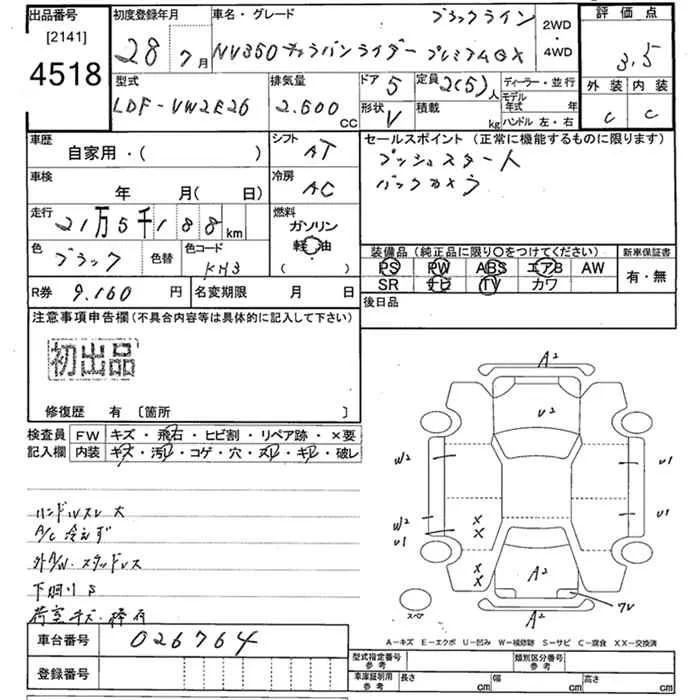 出品番号
[2141]
4518
初度登録年月
28 7月
車名・グレード
ブラックライン
NV350キャラバンライダー プレミアムGX
2WD
・
4WD
評価点
3.5
外装 内装
C C
型式
LDF-VW2E26
排気量
2.500
CC
ドア 5
形状 V
定員 2(5)人
積載 kg
ディーラー・並行
モデル
年式 年
ハンドル 左・右
車歴
自家用・( )
シフト
AT
セールスポイント (正常に機能するものに限ります)
プッシュスタート
バックカメラ
車検
年 月( 日)
冷房
AC
走行
21万5千188km
燃料
ガソリン
軽油
( ・ )
色
ブラック
色替
色コード
KH3
装備品 (純正品に限り〇をつけてください)
PS PW ABS エアB AW
SR ナビ TV カワ
新車保証書
有・無
R券 9.160 円
名変期限 月 日
後日品
注意事項申告欄 (不具合内容等は具体的に記入して下さい)
初出品
修復歴 有 [箇所 ]
検査員
記入欄
FW キズ・飛石・ヒビ割・リペア跡・×要
内装 キズ・汚レ・コゲ・穴・スレ・キレ・破レ
ハンドルスレ大
A/C 冷えず
外AW・スタッドレス
下回りS
荷室キズ・
A²
U²
W² U1
W² U1
U1 X
X
X
X
A²
スペア
A²
7V
A-キズ E-エクボ U-凹み W-補修跡 S-サビ C-腐食 XX-交換済
車台番号 026764
登録番号
型式指定番号
参考
類別区分番号
参考
車庫証明用
参考
長さ cm 幅 cm 高さ cm